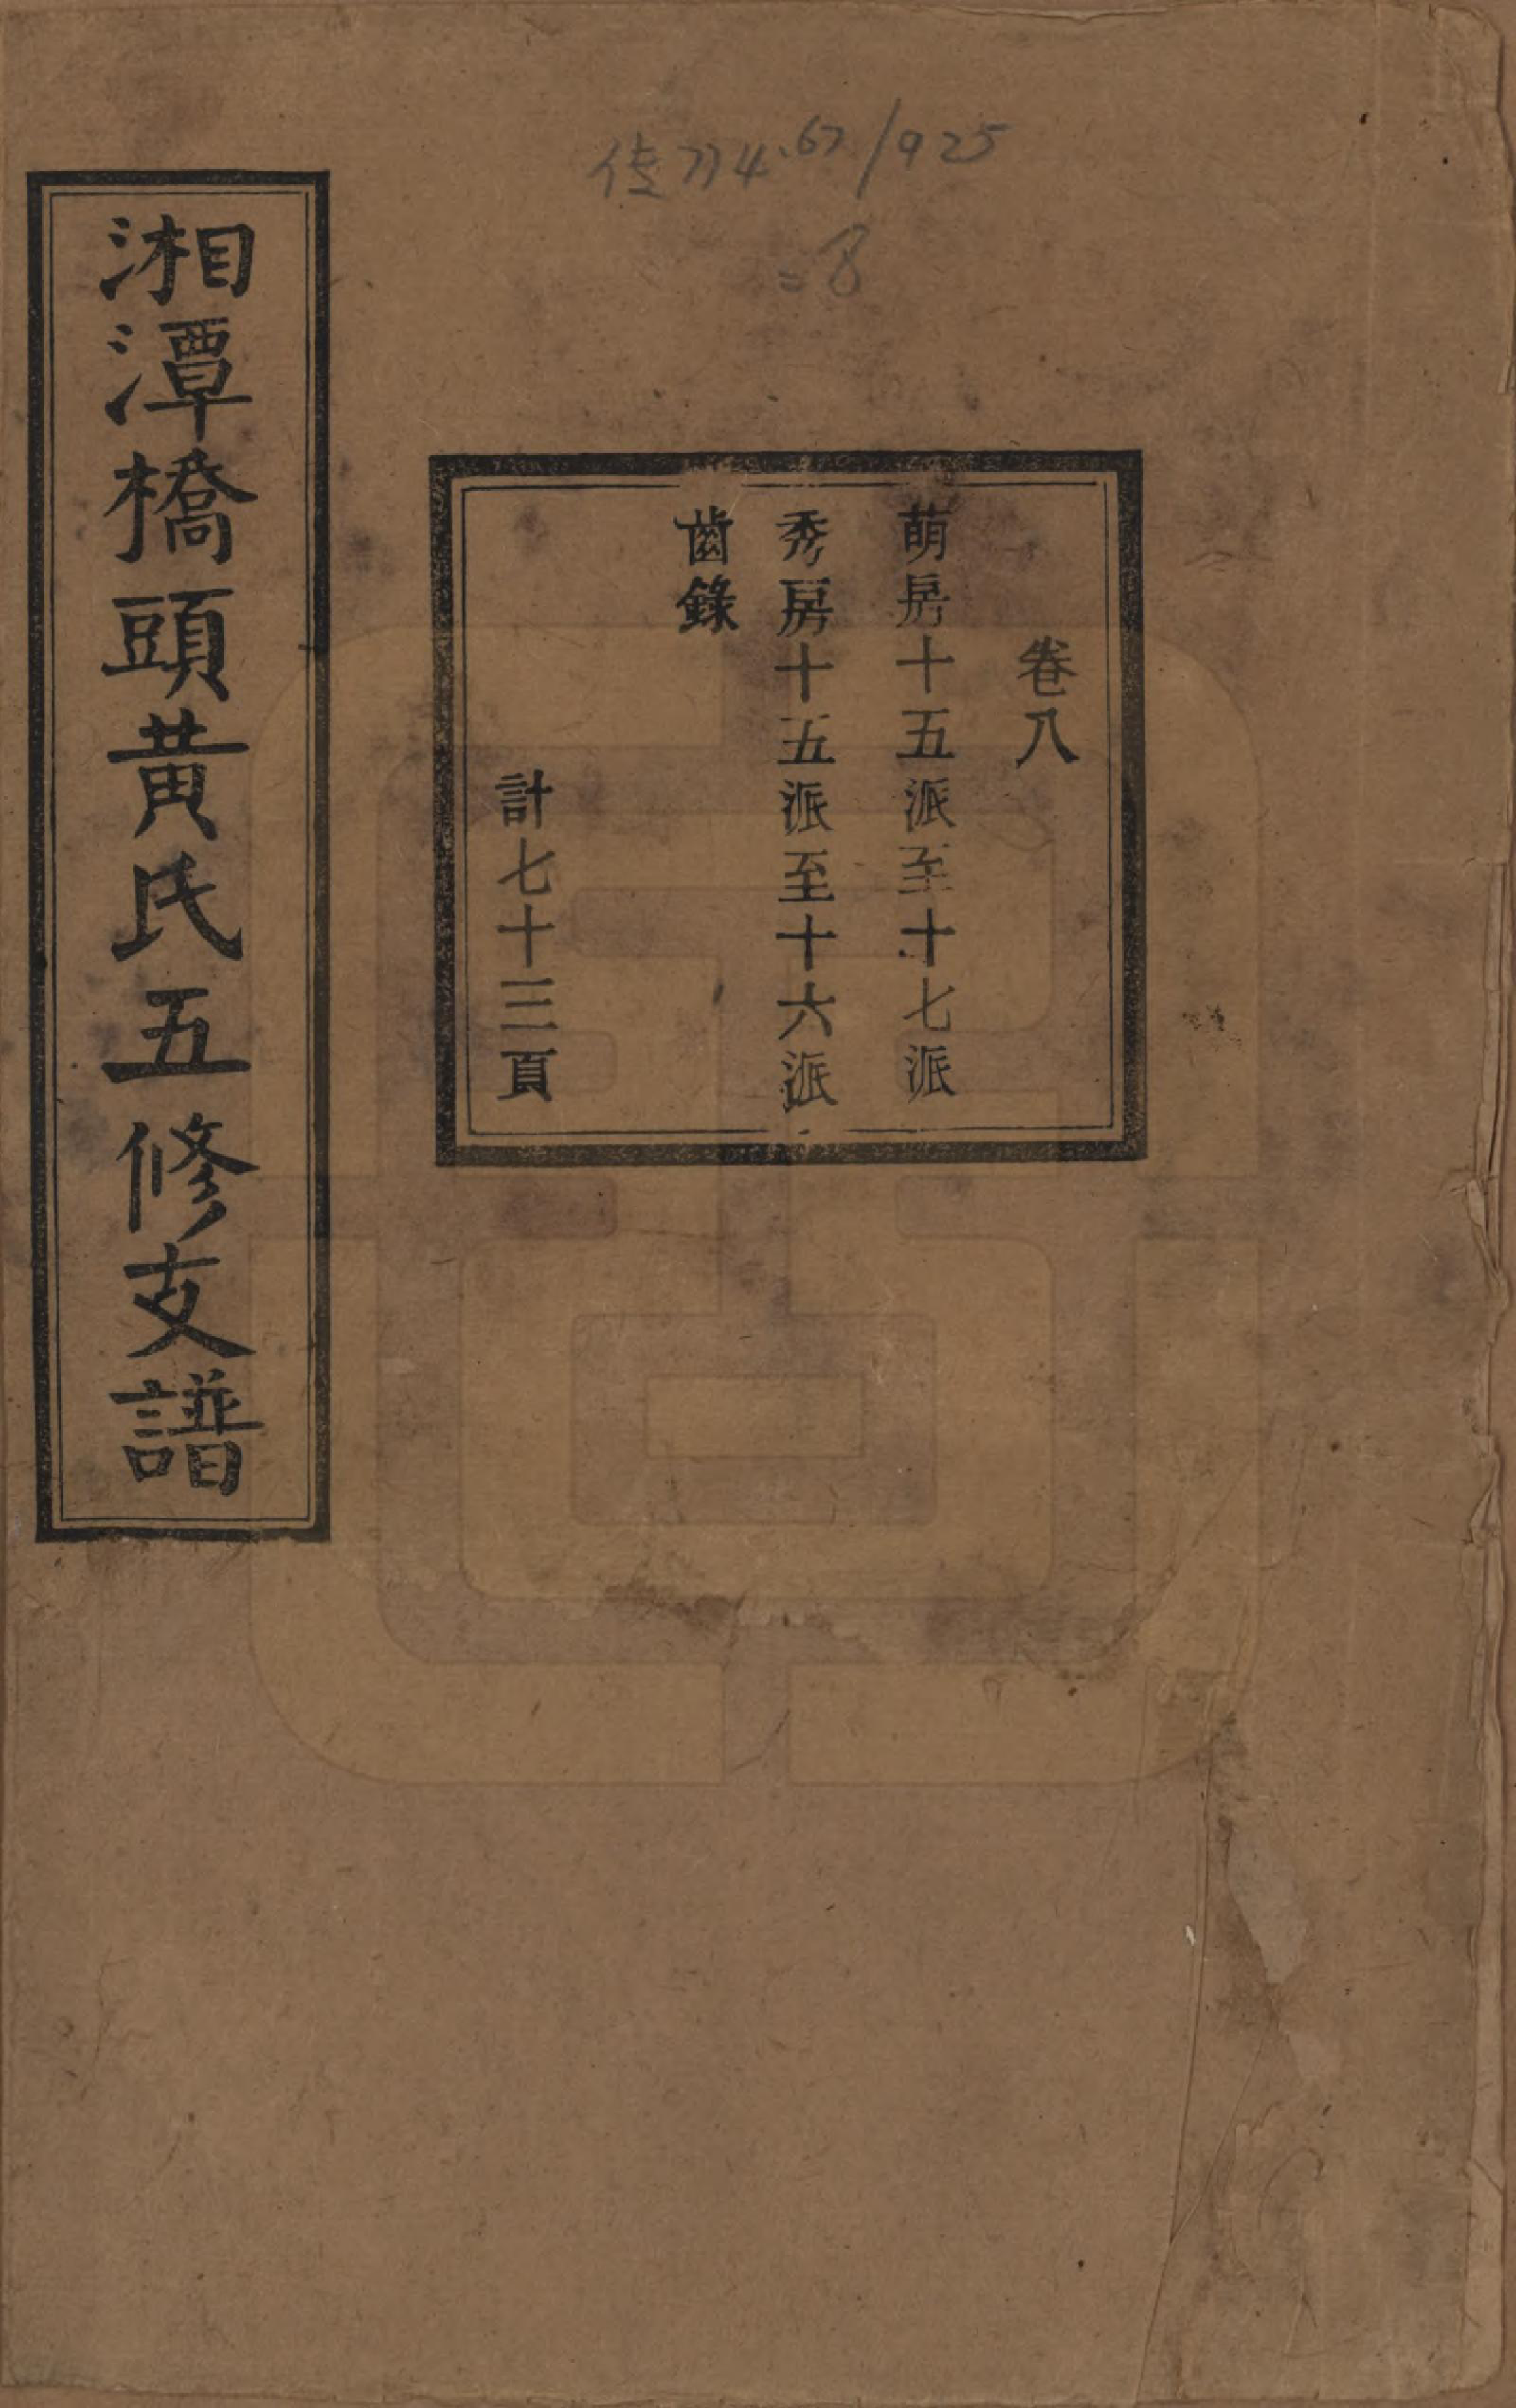 傳774.67/925
=8
卷八
萌房十五派至十七派
秀房十五派至十六派
齒錄
計七十三頁
湘潭橋頭黃氏五修支譜